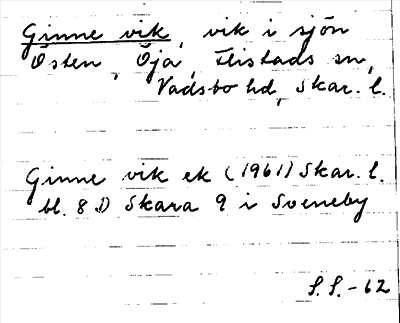 Ginne vik, vik i sjön
Östen, Öja, Flistads sn,
Vadsbo hd, Skar. l.
Ginne vik ek (1961) Skar. l.
bl. 8 D Skara 9 i Sveneby
S.S. -62